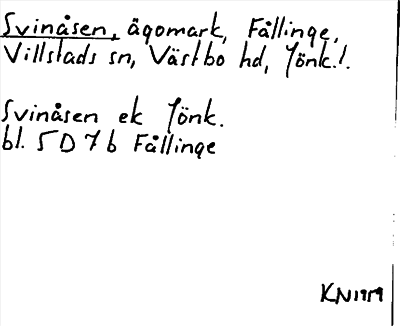 Svinåsen, ägomark, Fållinge,
Villstads sn, Västbo hd, Jönk.l.
Svinåsen ek Jönk.
bl. 5D7b Fållinge
KN1959